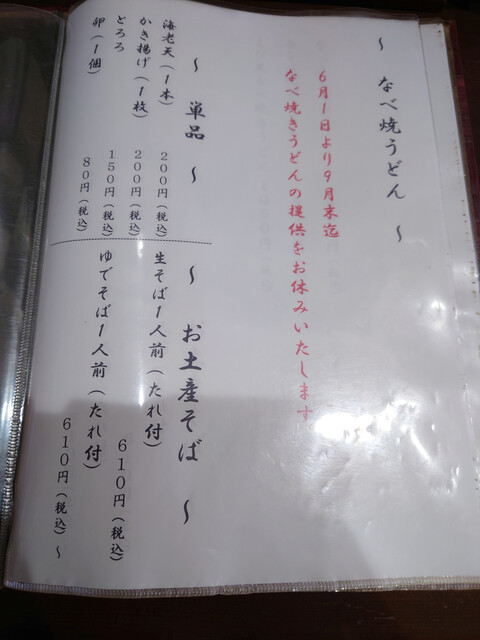 ～ なべ焼うどん ～
6月1日より9月末迄
なべ焼きうどんの提供をお休みいたします
～ 単品 ～
海老天（1本） 200円（税込）
かき揚げ（1枚） 200円（税込）
とろろ 150円（税込）
卵（1個） 80円（税込）
～ お土産そば ～
生そば1人前（たれ付） 610円（税込）
ゆでそば1人前（たれ付） 610円（税込）～